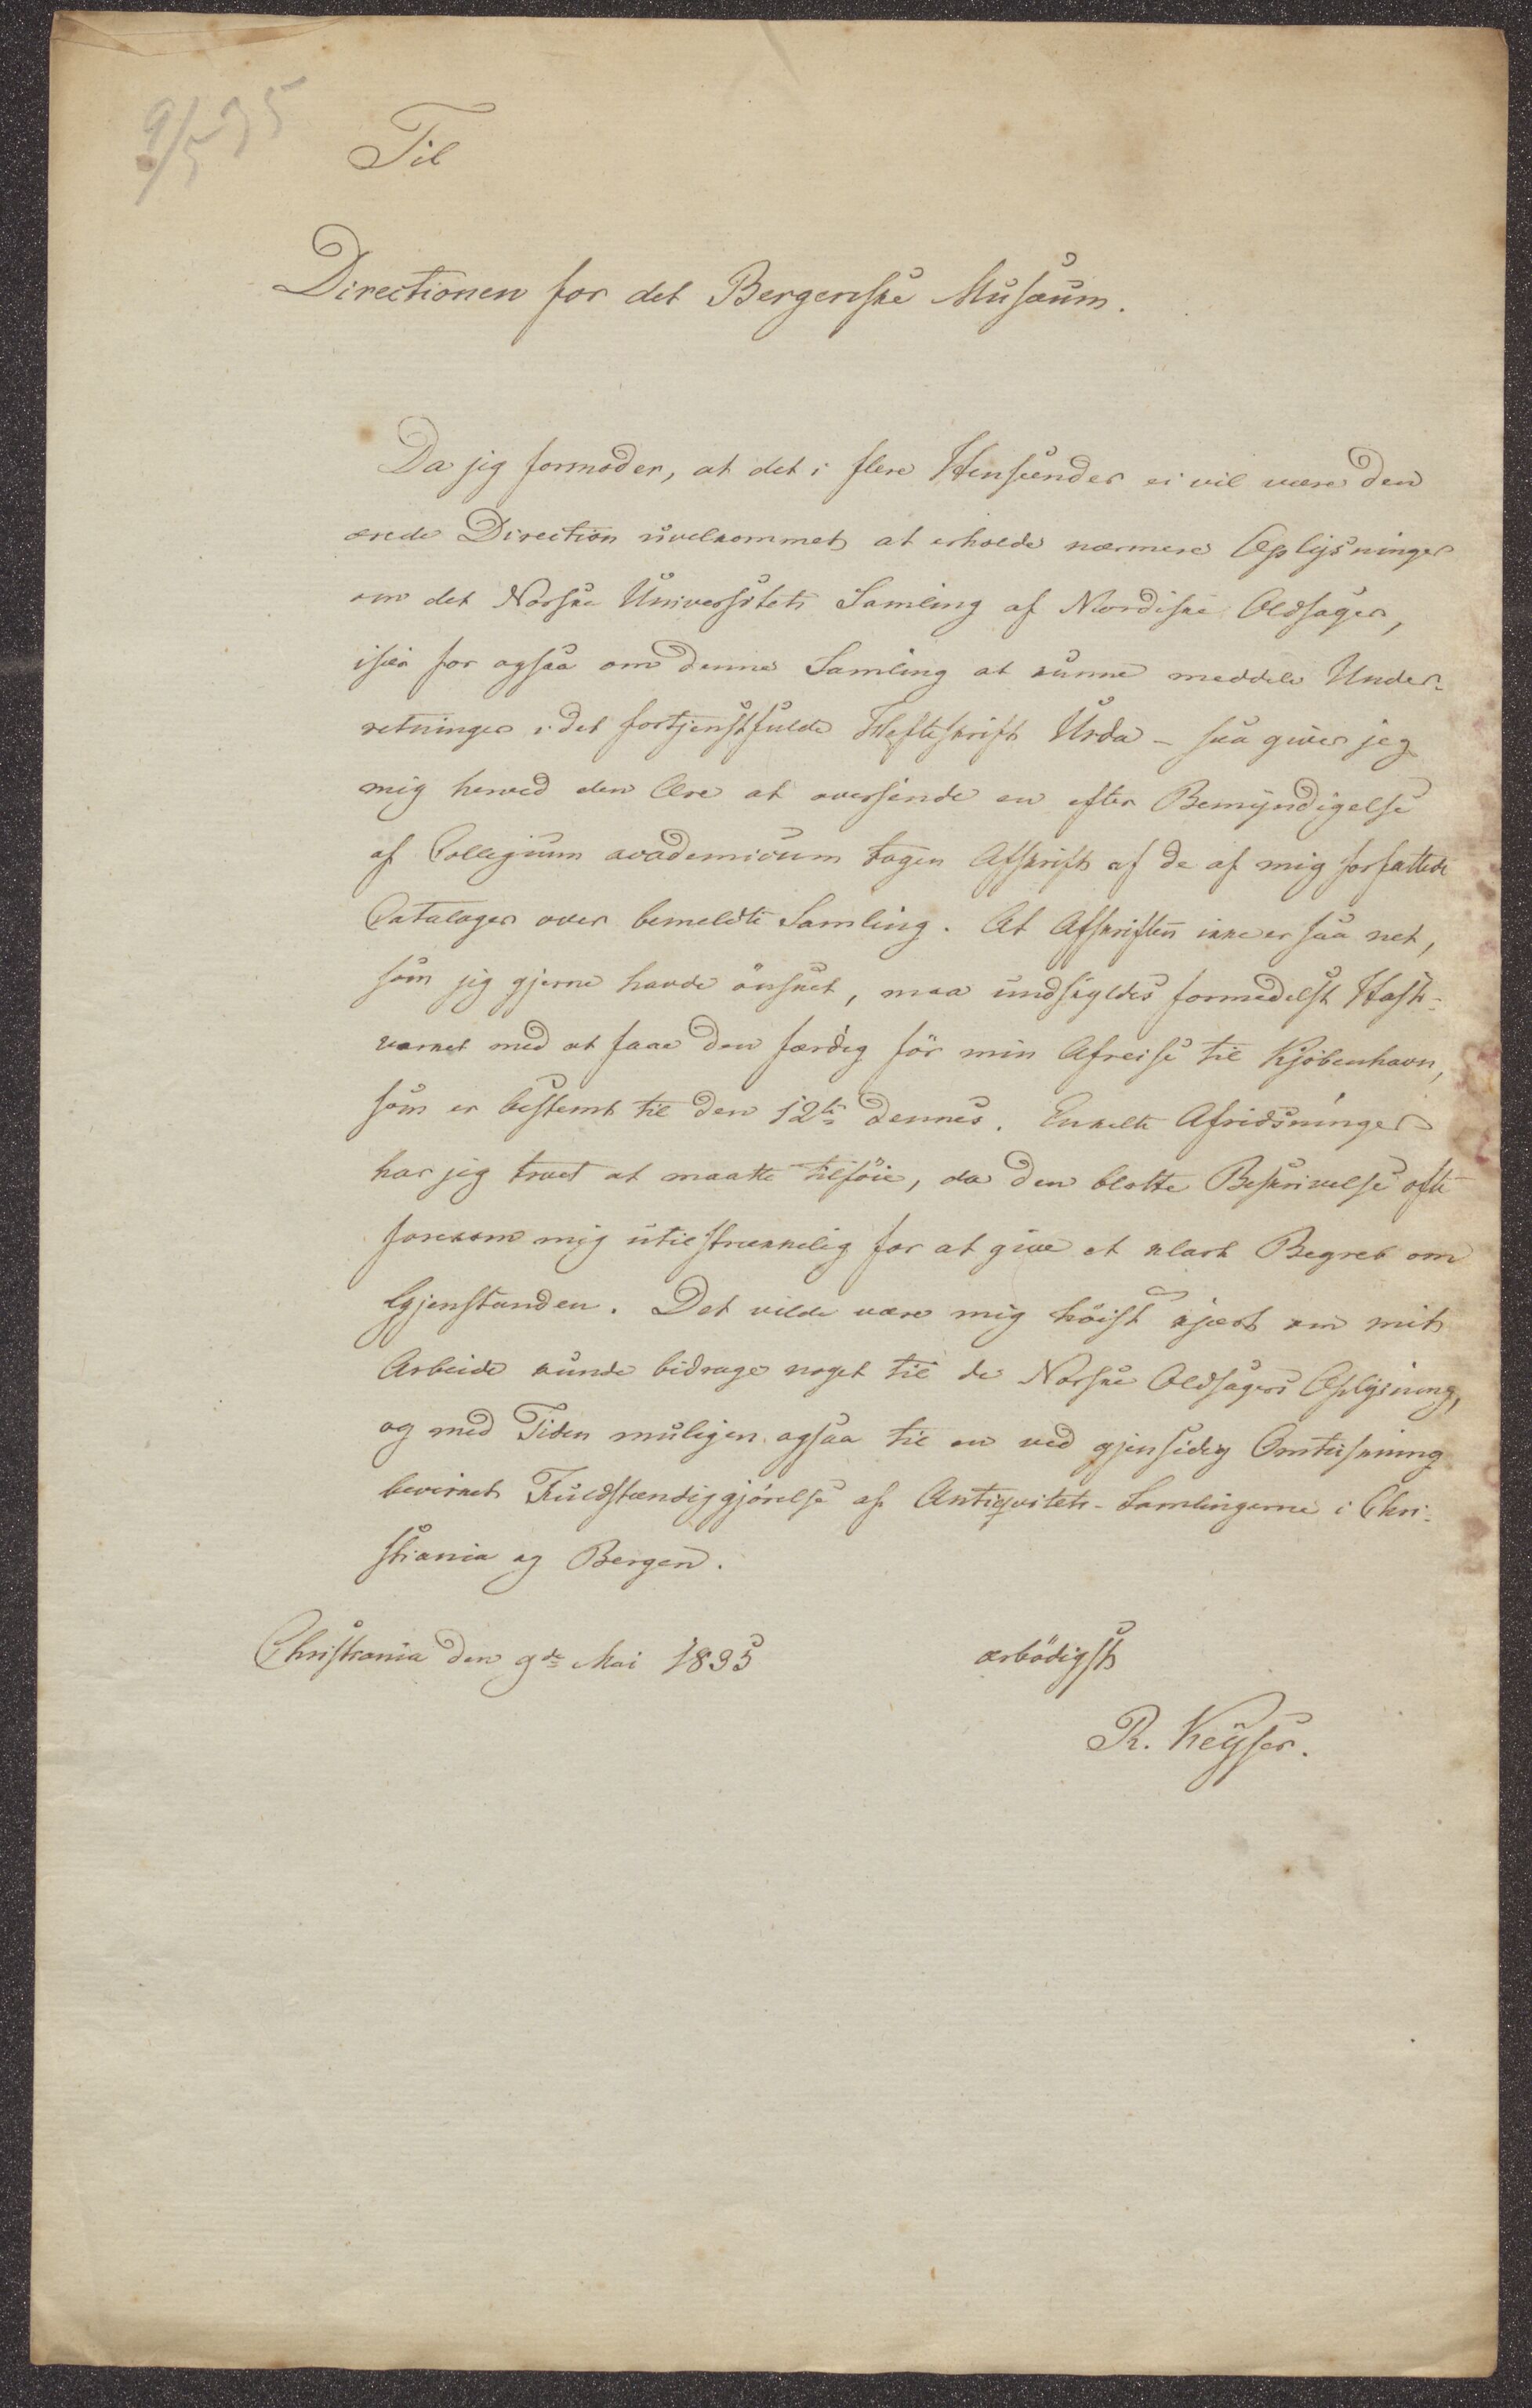 9/5 35
Til
Directionen for det Bergenske Musæum.
Da jeg formoder, at det i flere Henseender ei vil være den
ærede Direction uvelkomment at erholde nærmere Oplysninger
om det Norske Universitets Samling af Nordiske Oldsager,
især for ogsaa om denne Samling at kunne meddele Under-
retninger i det fortjenstfulde Hefteskrift Urda – saa giver jeg
mig herved den Ære at oversende en efter Bemyndigelse
af Collegium academicum tagen Afskrift af de af mig forfattede
Cataloger over bemeldte Samling. At Afskriften ikke er saa net,
som jeg gjerne havde önsket, maa undskyldes formedelst Hast-
værket med at faae den færdig för min Afreise til Kjöbenhavn,
som er bestemt til den 12te dennes. Enkelte Afridsninger
har jeg troet at maatte tilföie, da den blotte Beskrivelse ofte
forekom mig utilstrækkelig for at give et klart Begreb om
Gjenstanden. Det vilde være mig höist kjært om mit
Arbeide kunde bidrage noget til de Norske Oldsagers Oplysning,
og med Tiden muligen ogsaa til en ved gjensidig Omtuskning
bevirket Fuldstændiggjörelse af Antiqvitets-Samlingerne i Chri-
stiania og Bergen.
Christiania den 9de Mai 1835
ærbödigst
R. Keyser.